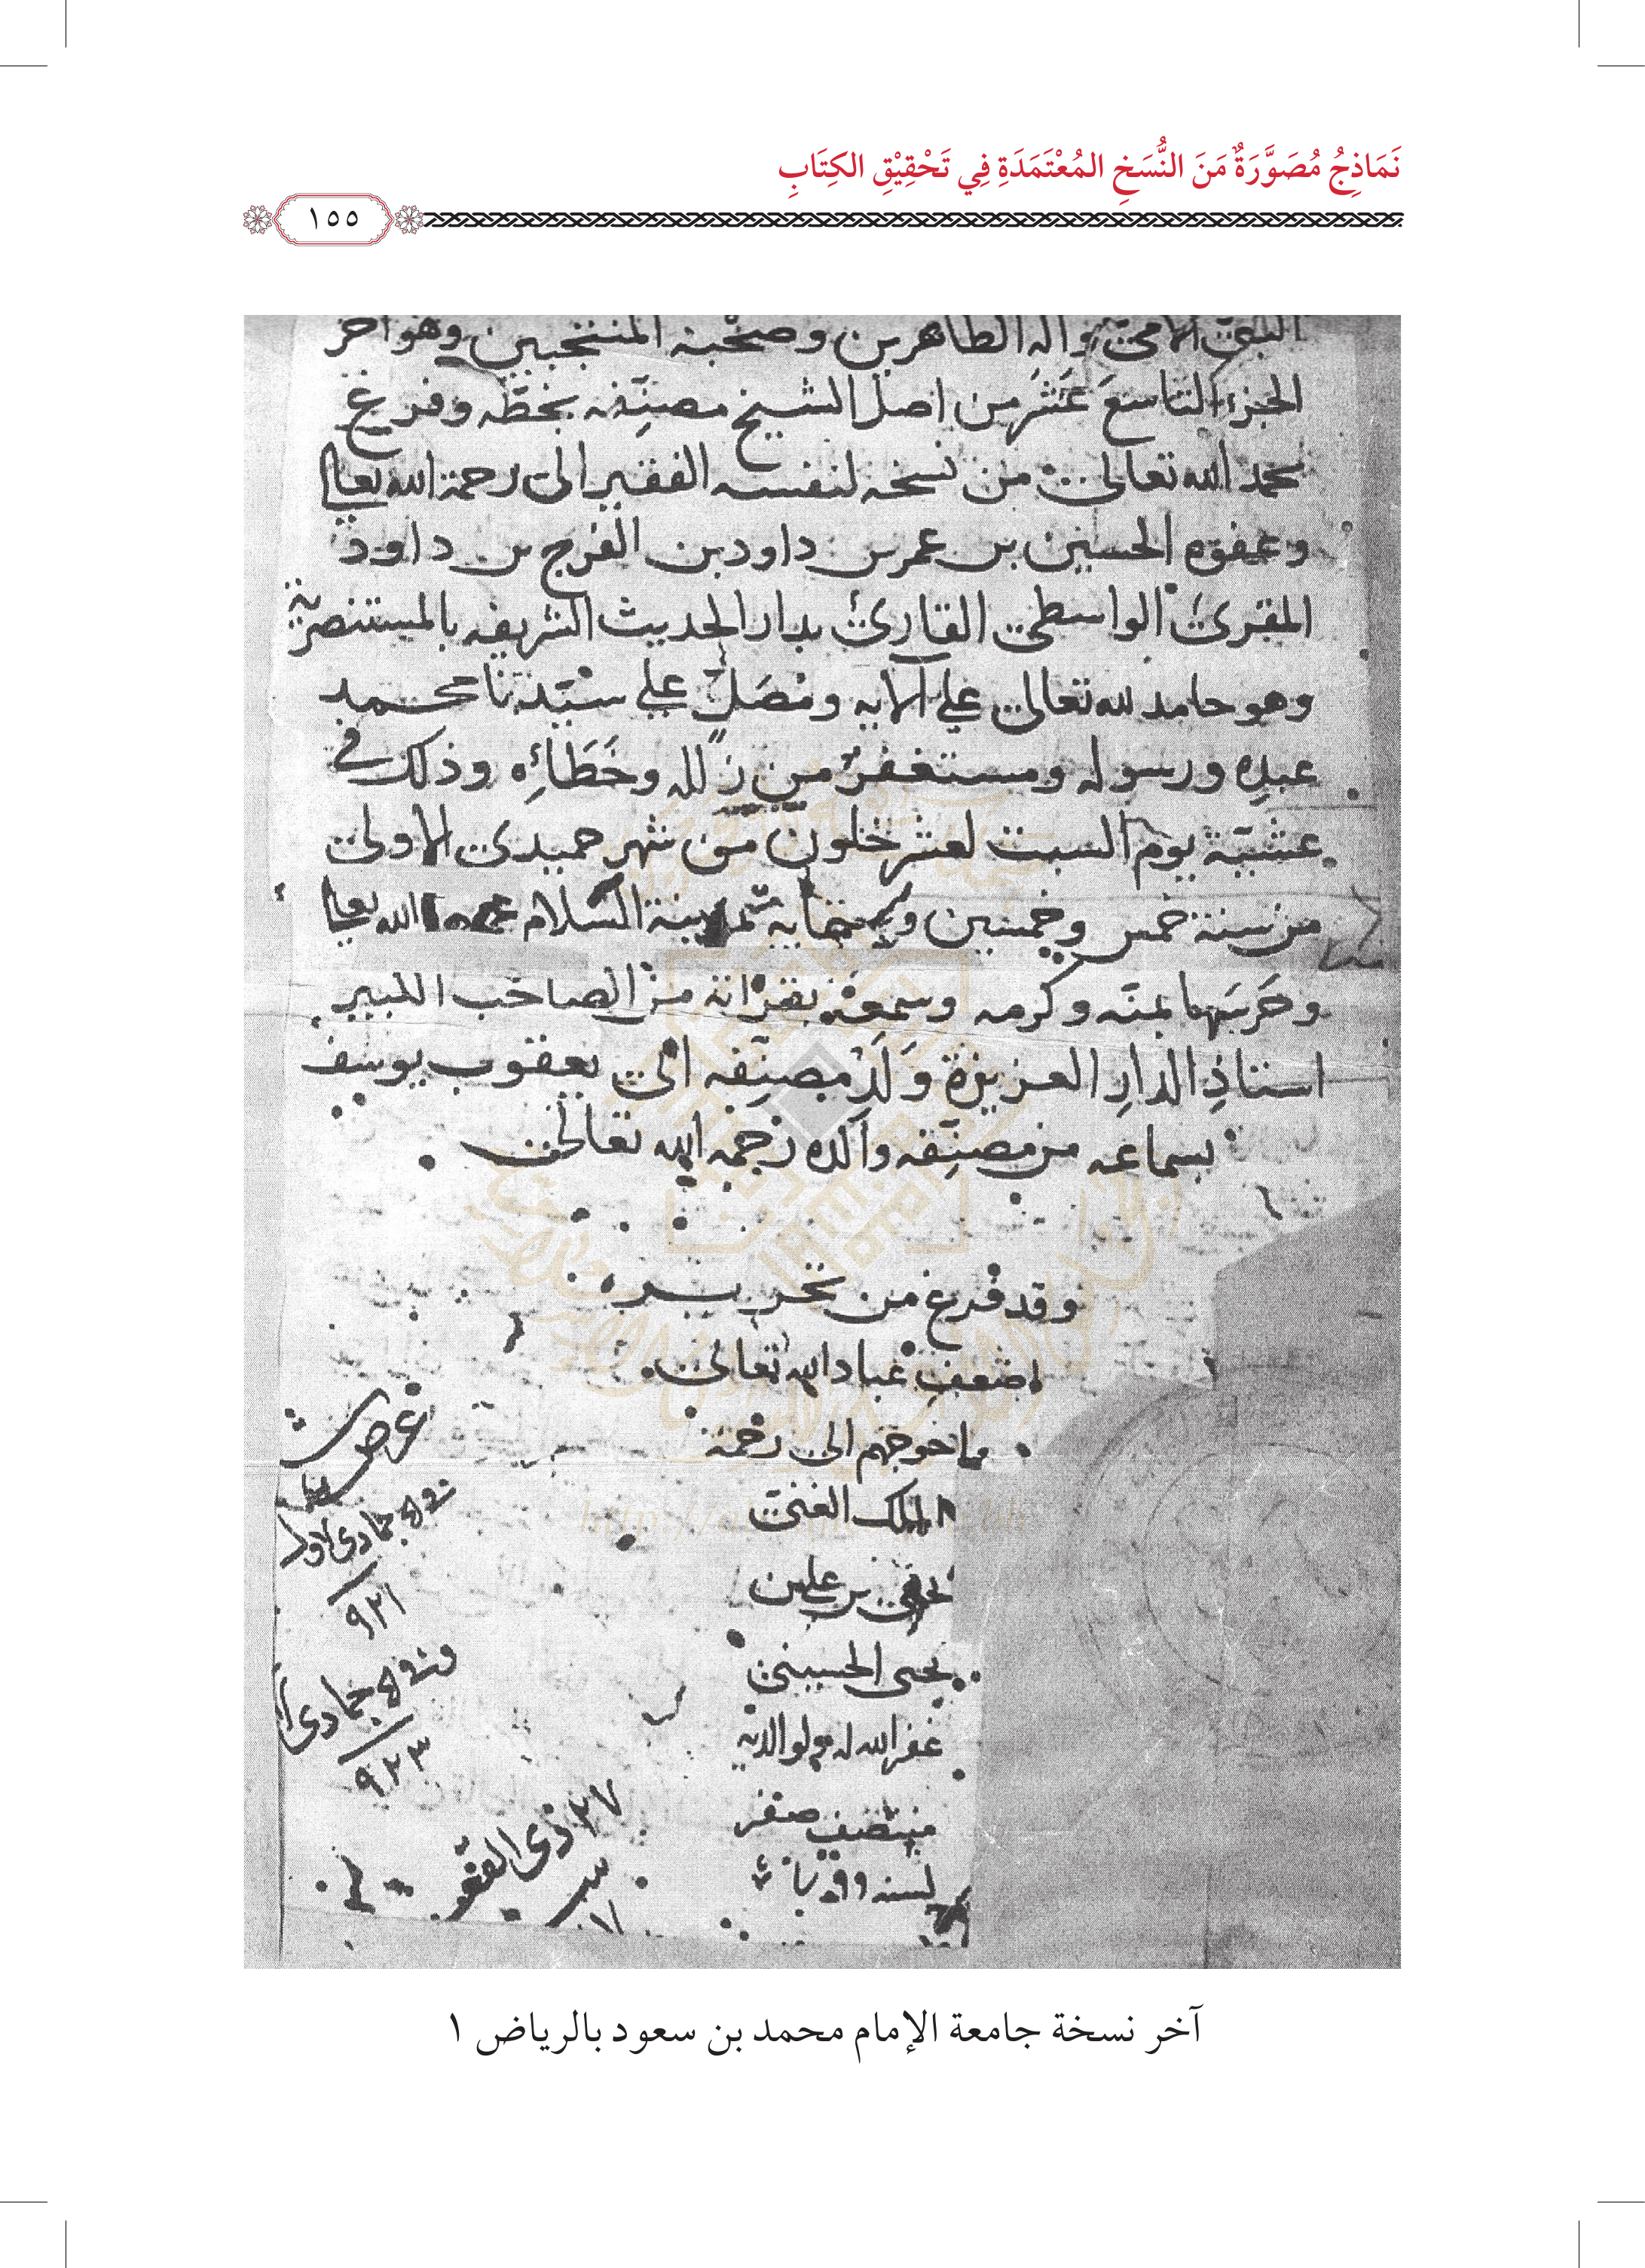 نَمَاذِجُ مُصَوَّرَةٌ مَنَ النُّسَخِ المُعْتَمَدَةِ فِي تَحْقِيْقِ الكِتَابِ
١٥٥
النبي الامي واله الطاهرين وصحبه المنتجبين وهو اخر
الجزء التاسع عشر من اصل الشيخ مصنفه بخطه وفرغ
بحمد الله تعالى من نسخه لنفسه الفقير الى رحمة الله تعالى
وعفوه الحسين بن عمر بن داود بن الفرج بن داود
المقرئ الواسطي القارئ بدار الحديث الشريفه بالمستنصرية
وهو حامد لله تعالى علي آلايه ومصل علي سيدنا محمد
عبده ورسوله ومستغفر من زلله وخطائه وذلك في
عشية يوم السبت لعشر خلون من شهر جميدى الاولى
من سنة خمس وخمسين وستمايه بمدينة السلام الله تعالى
وحرسها بمنه وكرمه وسمعه بقراته من الصاحب الكبير
استاذ الدار العزيزة ولد مصنفه ابي يعقوب يوسف
بسماعه من مصنفه والده رحمه الله تعالى
وقد فرغ من تحريره
اضعف عباد الله تعالى
واحوجهم الى رحمة
الملك الغني
بن علي بن
يحيى الحسيني
غفر الله له ولوالديه
منتصف صفر
لسنه
جمادى الاول
٩٢١
جمادى
٩٢٣
٢٧ ذي
آخر نسخة جامعة الإمام محمد بن سعود بالرياض ١